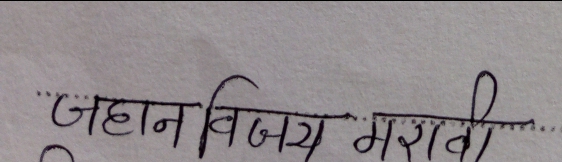 जहान विजय मरावी